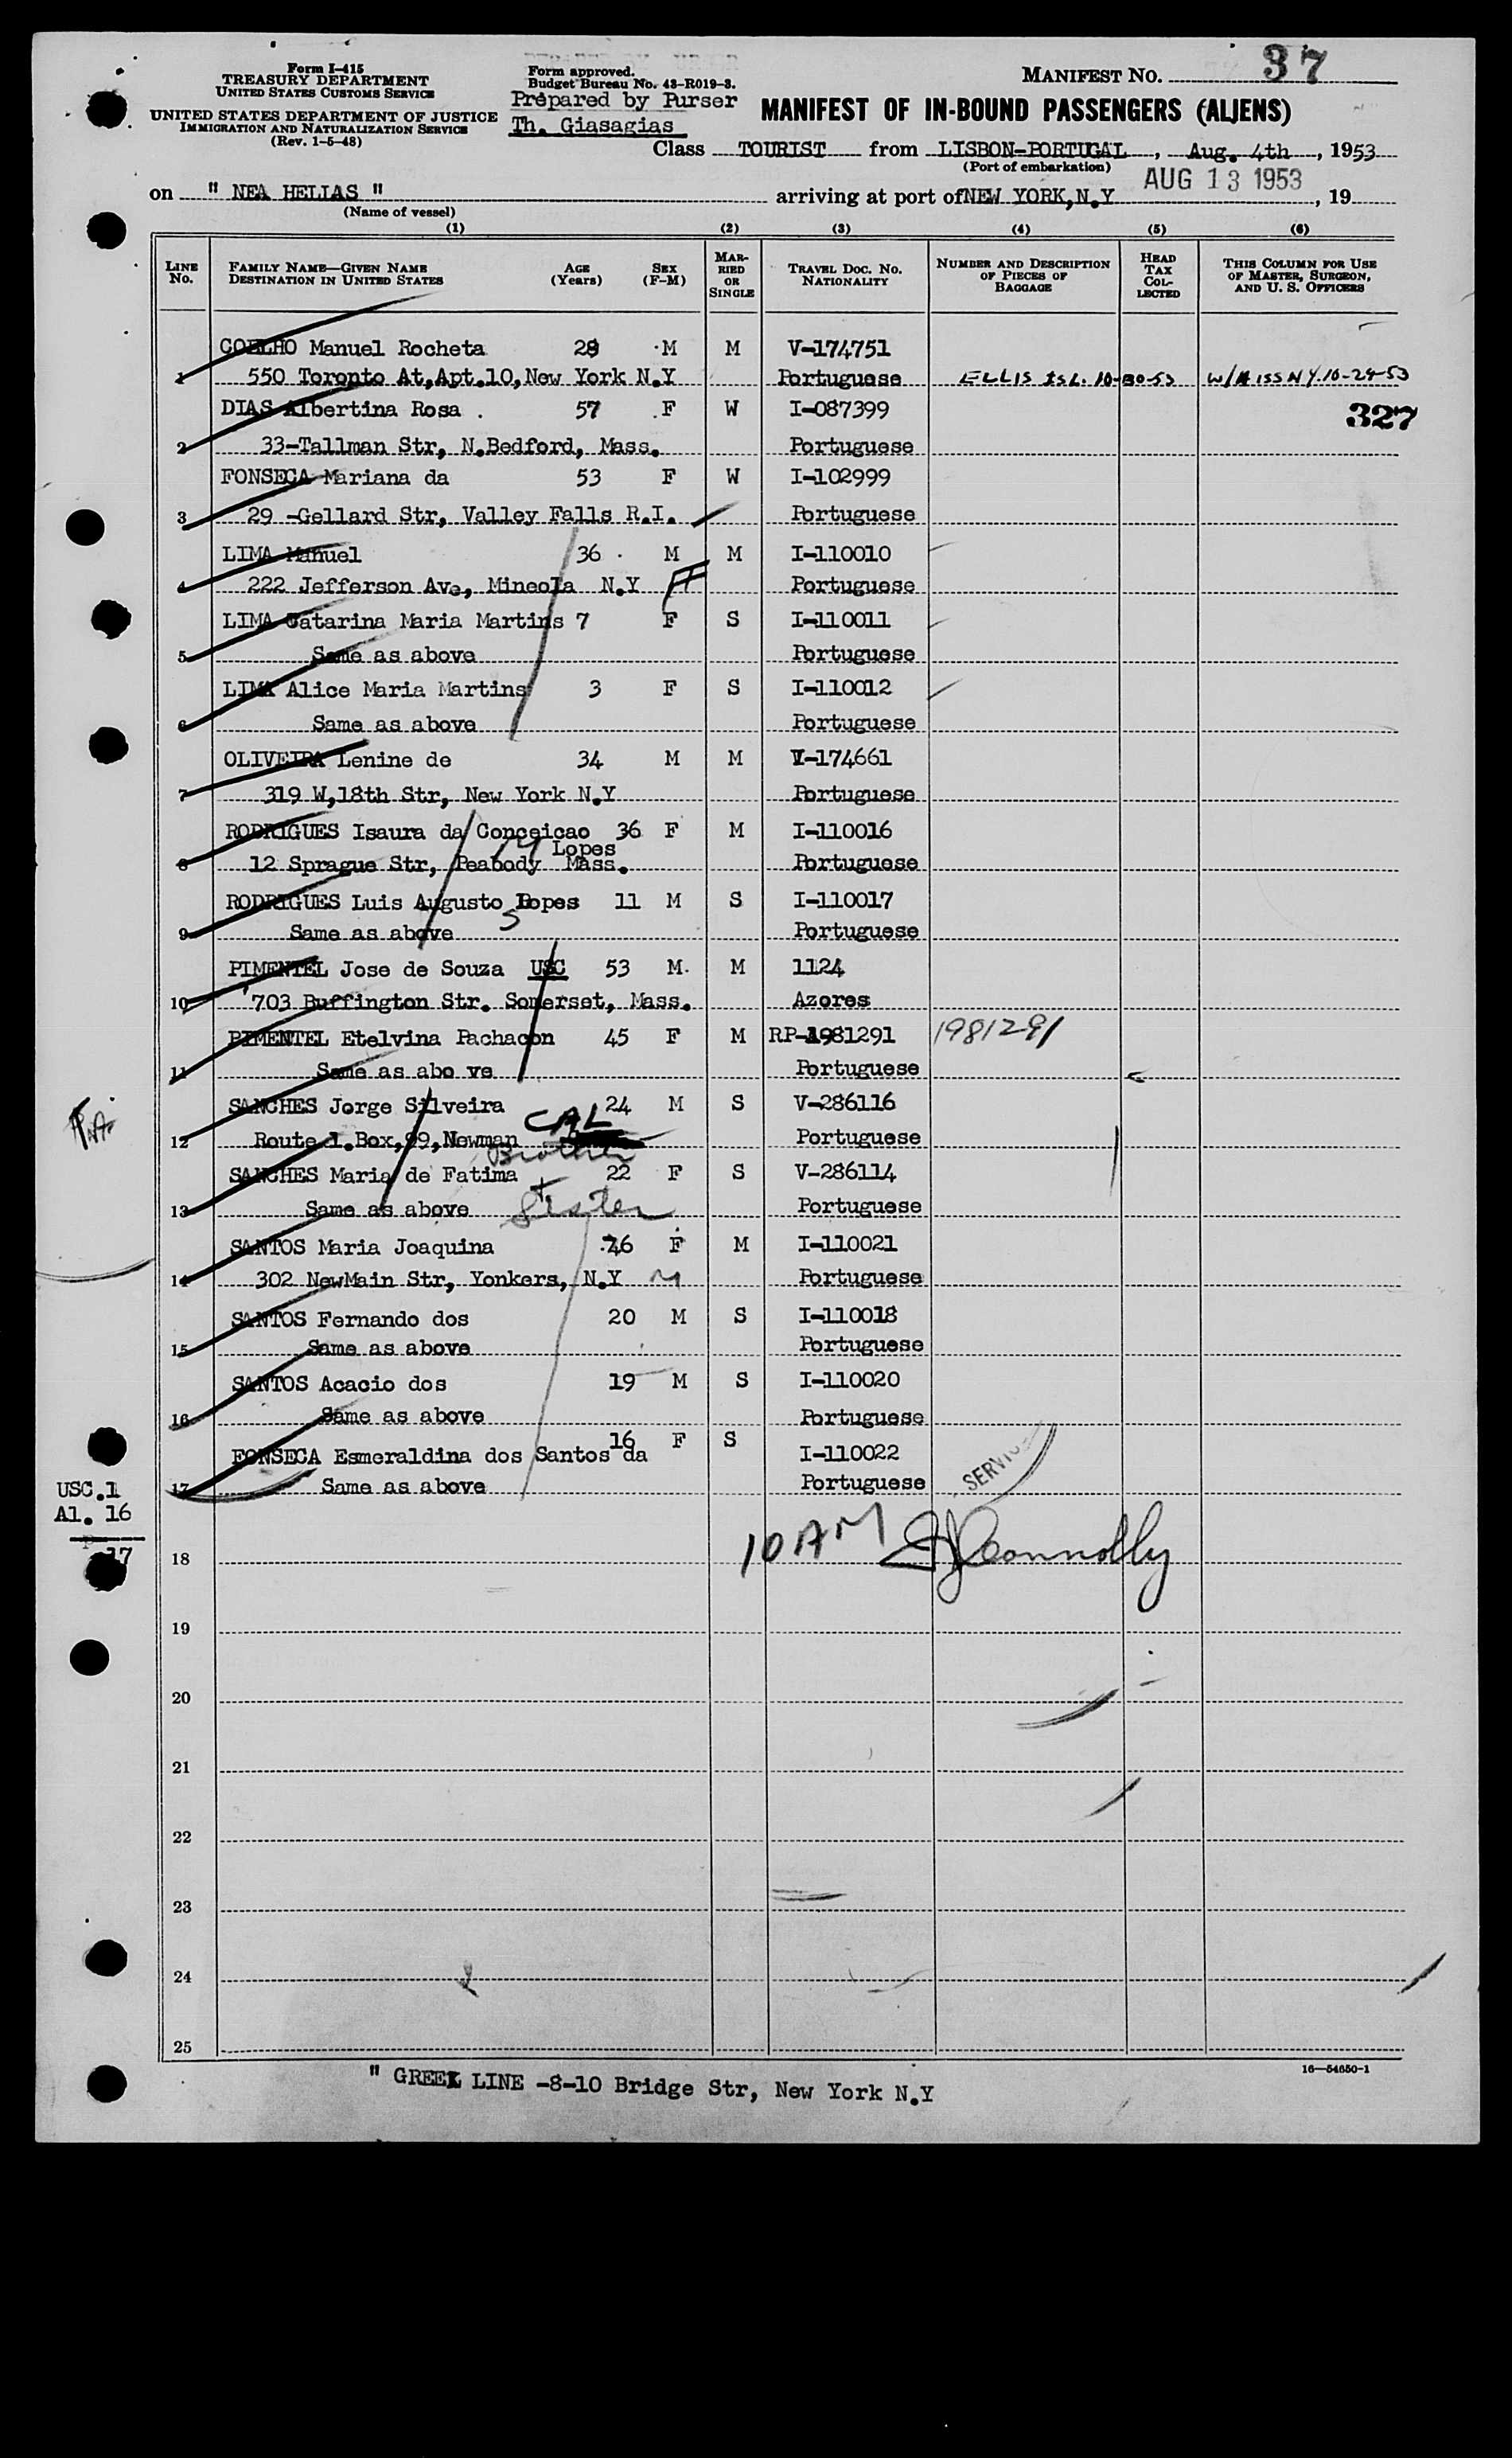 Form I-415
TREASURY DEPARTMENT
UNITED STATES CUSTOMS SERVICE
UNITED STATES DEPARTMENT OF JUSTICE
IMMIGRATION AND NATURALIZATION SERVICE
(Rev. 1-5-48)
Form approved.
Budget Bureau No. 43-R019-3.
Prepared by Purser
Th. Giasagias
MANIFEST No. 37
MANIFEST OF IN-BOUND PASSENGERS (ALIENS)
Class TOURIST from LISBON-PORTUGAL, Aug. 4th, 1953
(Port of embarkation)
on " NEA HELIAS " arriving at port of NEW YORK,N.Y AUG 13 1953, 19
(Name of vessel)
(1) (2) (3) (4) (5) (6)
LINE No. FAMILY NAME—GIVEN NAME DESTINATION IN UNITED STATES AGE (Years) SEX (F-M) MARRIED OR SINGLE TRAVEL DOC. NO. NATIONALITY NUMBER AND DESCRIPTION OF PIECES OF BAGGAGE HEAD TAX COLLECTED THIS COLUMN FOR USE OF MASTER, SURGEON, AND U. S. OFFICERS
COELHO Manuel Rocheta 28 M M V-174751
1 550 Toronto At,Apt.10,New York N.Y Portuguese ELLIS ISL. 10-30-53 W/A ISS N.Y. 10-29-53
DIAS Albertina Rosa . 57 F W I-087399 327
2 33-Tallman Str, N.Bedford, Mass. Portuguese
FONSECA Mariana da 53 F W I-102999
3 29 -Gellard Str, Valley Falls R.I. Portuguese
LIMA Manuel 36 M M I-110010
4 222 Jefferson Ave, Mineola N.Y Portuguese
LIMA Catarina Maria Martins 7 F S I-110011
5 Same as above Portuguese
LIMA Alice Maria Martins 3 F S I-110012
6 Same as above Portuguese
OLIVEIRA Lenine de 34 M M V-174661
7 319 W,18th Str, New York N.Y Portuguese
RODRIGUES Isaura da Conceicao 36 F M I-110016
Lopes
8 12 Sprague Str, Peabody Mass. Portuguese
RODRIGUES Luis Augusto Lopes 11 M S I-110017
S
9 Same as above Portuguese
PIMENTEL Jose de Souza USC 53 M. M 1124
10 703 Buffington Str. Somerset, Mass. Azores
PIMENTEL Etelvina Pachacon 45 F M RP-1981291 1981291
11 Same as abo ve Portuguese
SANCHES Jorge Silveira 24 M S V-286116
12 Route 1.Box,99,Newman CAL Portuguese
Brother
SANCHES Maria de Fatima 22 F S V-286114
+ Sister
13 Same as above Portuguese
SANTOS Maria Joaquina 46 F M I-110021
14 302 NewMain Str, Yonkers, N.Y M Portuguese
SANTOS Fernando dos 20 M S I-110018
15 Same as above Portuguese
SANTOS Acacio dos 19 M S I-110020
16 Same as above Portuguese
FONSECA Esmeraldina dos Santos da 16 F S I-110022
17 Same as above Portuguese
SERVICE
USC.1
Al. 16
17
10 AM Connolly
18
19
20
21
22
23
24
25
16—54650-1
" GREEK LINE -8-10 Bridge Str, New York N.Y